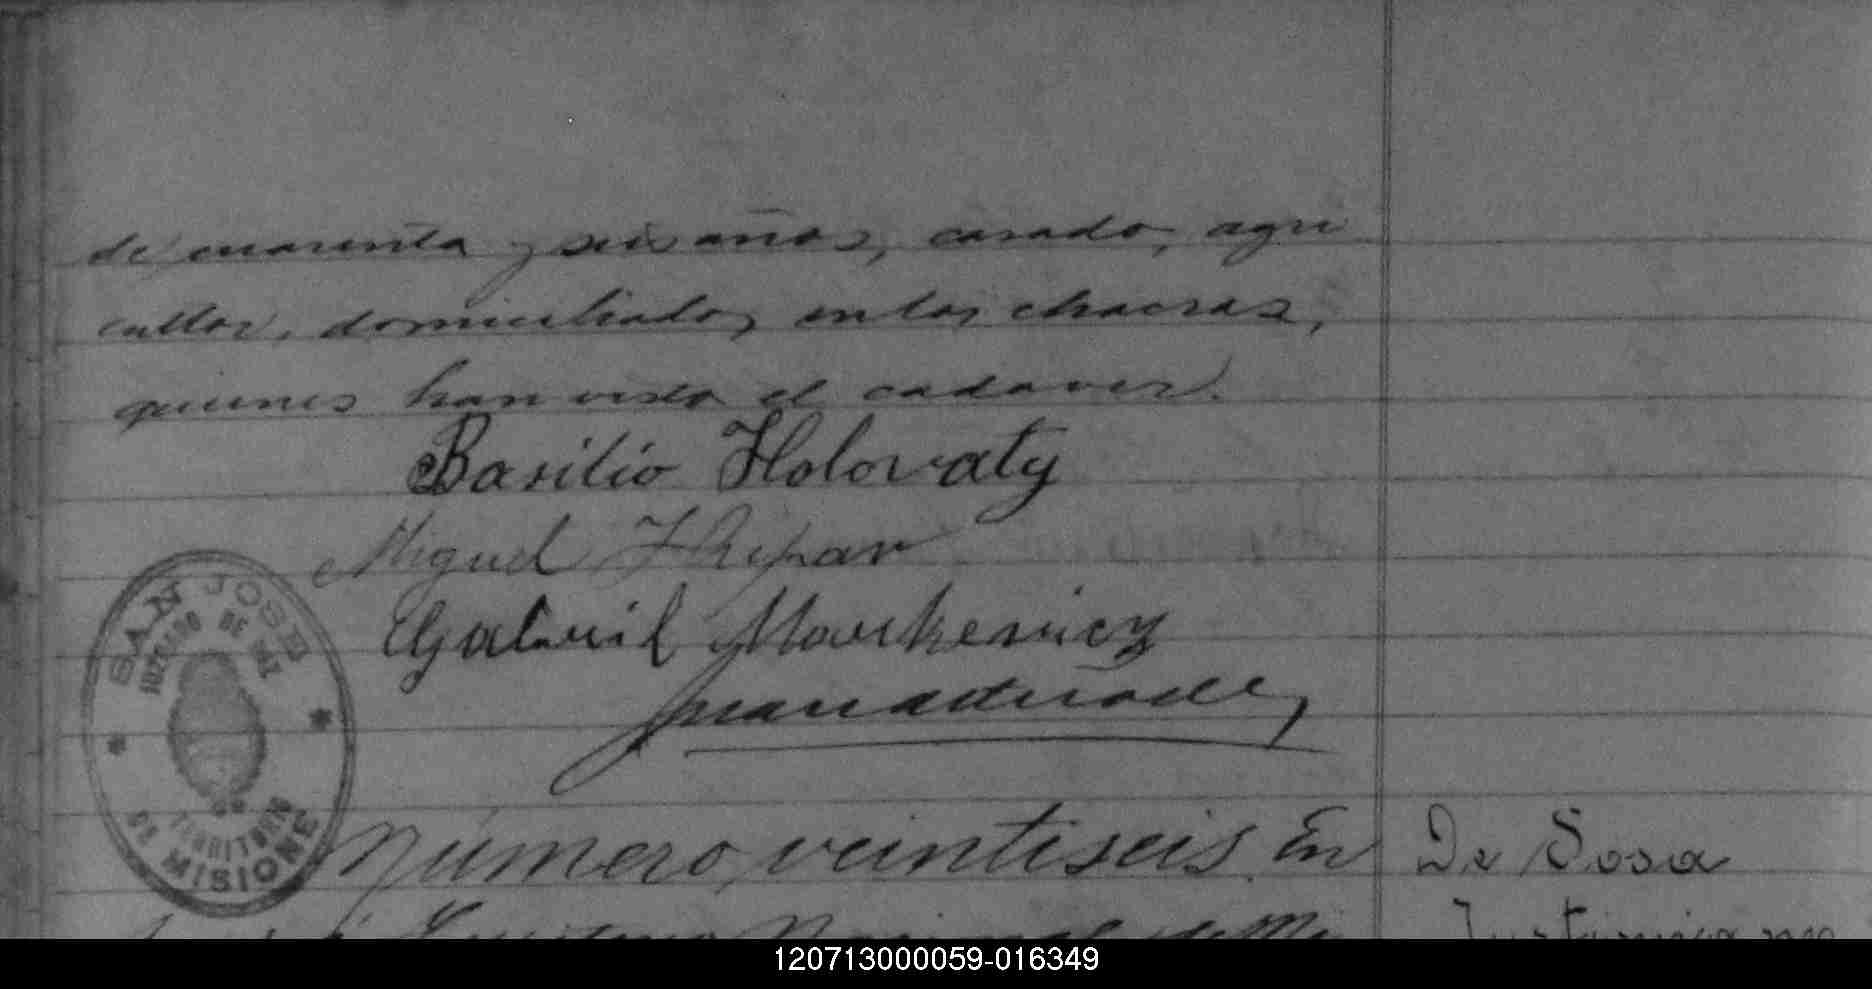 de cuarenta y seis años, casado, agri
cultor, domiciliados en las chacras,
quienes han visto el cadaver.
Basilio Holovaty
Miguel
Gabriel Markevicz
SAN JOSE
JUZGADO DE PAZ
TERRITORIO
DE MISIONES
Número veintiseis. En
De Sosa
Territorio Nacional de Mi
120713000059-016349